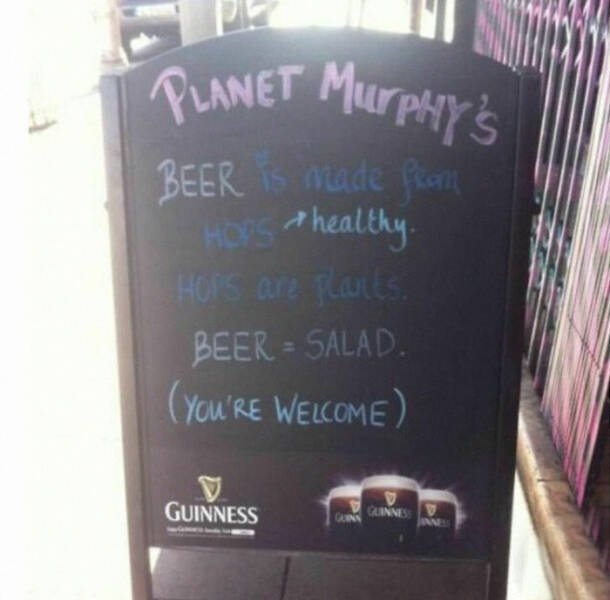 PLANET MURPHY'S
BEER is made from
HOPS → healthy.
HOPS are plants.
BEER = SALAD.
(YOU'RE WELCOME)
GUINNESS
GUINNESS